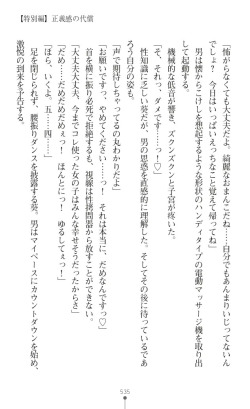 【特別編】正義感の代償
「怖がらなくて大丈夫だよ、綺麗なおまんこだね……自分でもあんまりいじってないんでしょ？　今日はいっぱいえっちなこと覚えて帰ってね」
男は懐からこけしを想起するような形状のハンディタイプの電動マッサージ機を取り出して起動する。
機械的な低音が響き、ズクンズクンと子宮が疼いた。
「そ、それっ、ダメです……っ！♡」
性知識に乏しい葵だが、男の思惑を直感的に理解した。そしてその後に待っているであろう自分の姿も。
「声で期待しちゃってるの丸わかりだよ」
「お願いですっ、やめてくださいっ……！　それは本当に、だめなんですっ♡」
首を横に振り必死で拒絶するも、視線は性拷問器から放すことができない。
「大丈夫大丈夫、今までコレ使った女の子はみんな幸せそうだったからさ」
「だめ……だめだめだめぇっ！　ほんとにっ！　ゆるしてぇっ！」
「ほら、いくよ、五……四……」
足を閉じられず、腰振りダンスを披露する葵。男はマイペースにカウントダウンを始め、激悦の到来を予告する。
535